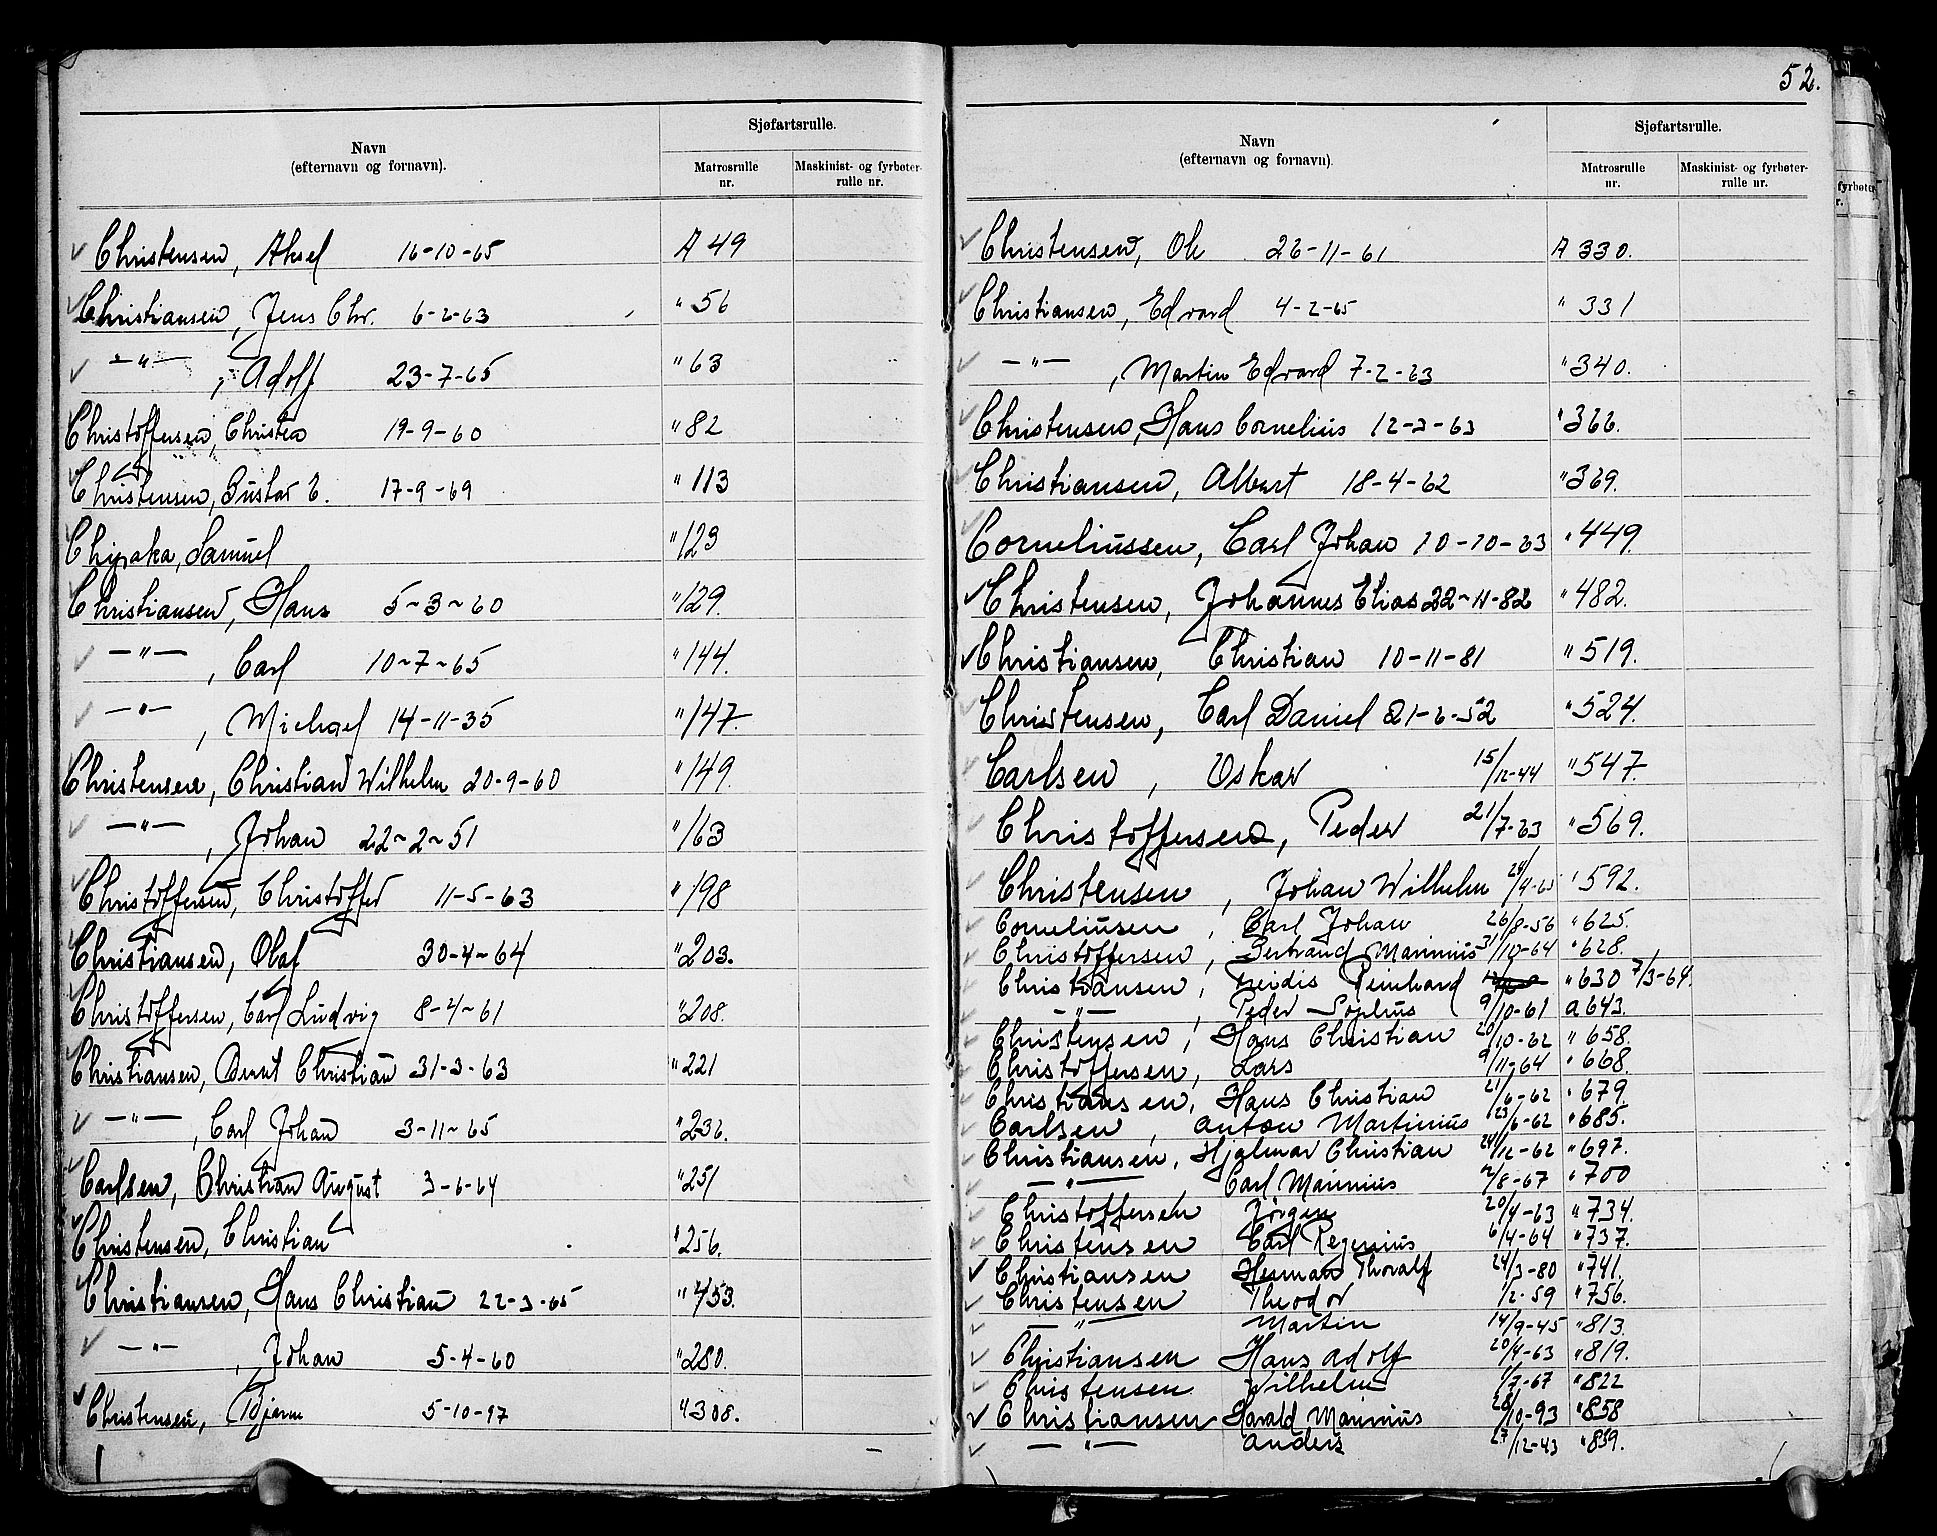 52.
Navn
(efternavn og fornavn).
Sjøfartsrulle.
Matrosrulle nr.
Maskinist- og fyrbøter-rulle nr.
Christensen, Aksel 16-10-65 A 49
Christiansen, Jens Chr. 6-2-63 " 56
—"— , Adolf 23-7-65 " 63
Christoffersen, Christen 19-9-60 " 82
Christensen, Gustav E. 17-9-69 " 113
Samuel " 123
Christiansen, Hans 5-3-60 " 129.
—"— , Carl 10-7-65 " 144.
—"— , Michael 14-11-35 " 147.
Christensen, Christian Wilhelm 20-9-60 " 149.
—"— , Johan 22-2-51 " 163
Christoffersen, Christoffer 11-5-63 " 198
Christiansen, Olaf 30-4-64 " 203.
Christoffersen, Carl Ludvig 8-4-61 " 208.
Christiansen, Bernt Christian 31-3-63 " 221
—"— , Carl Johan 3-11-65 " 236.
Carlsen, Christian August 3-6-64 " 251
Christensen, Christian " 256.
Christiansen, Hans Christian 22-3-65 "
—"— , Johan 5-4-60 " 280.
Christensen, Bjarne 5-10-97 " 308.
Navn
(efternavn og fornavn).
Sjøfartsrulle.
Matrosrulle nr.
Maskinist- og fyrbøter-rulle nr.
Christensen, Ole 26-11-61 A 330.
Christiansen, Edvard 4-2-65 " 331
—"— , Martin Edvard 7-2-63 " 340.
Christensen, Hans Cornelius 12-3-63 " 366.
Christiansen, Albert 18-4-62 " 369.
Corneliussen, Carl Johan 10-10-63 " 449.
Christensen, Johannes Elias 22-11-82 " 482.
Christiansen, Christian 10-11-81 " 519.
Christensen, Carl Daniel 21-6-52 " 524.
Carlsen, Oskar 15/12-44 " 547.
Christoffersen, Peder 21/7-63 " 569.
Christensen, Johan Wilhelm " 592.
Corneliusen, Carl Johan 26/8-56 " 625.
Christoffersen, Gertrand Marinius 31/10-64 " 628.
Christiansen, Reinhard " 630 7/3-64.
—"— , Peder Sophus 9/10-61 a 643.
Christensen, Hans Christian 20/10-62 " 658.
Christoffersen, Lars 9/11-64 " 668.
Christiansen, Hans Christian 21/6-62 " 679.
Carlsen, Anton Martinius 23/6-62 " 685.
Christiansen, Hjalmar Christian 24/12-62 " 697.
—"— Carl Marinius 2/8-67 " 700
Christoffersen Jörgen 20/4-63 " 734.
Christensen Carl Regenius 6/4-64 " 737.
Christiansen Herman Thoralf 24/3-80 " 741.
Christensen Theodor 1/2-59 " 756.
—"— Martin 14/9-45 " 813.
Christiansen Hans Adolf 20/4-63 " 819.
Christensen Wilhelm 1/7-67 " 822
Christiansen Harald Marinius 28/10-93 " 858
—"— Anders 27/12-43 " 859.
fyrbøter
r.